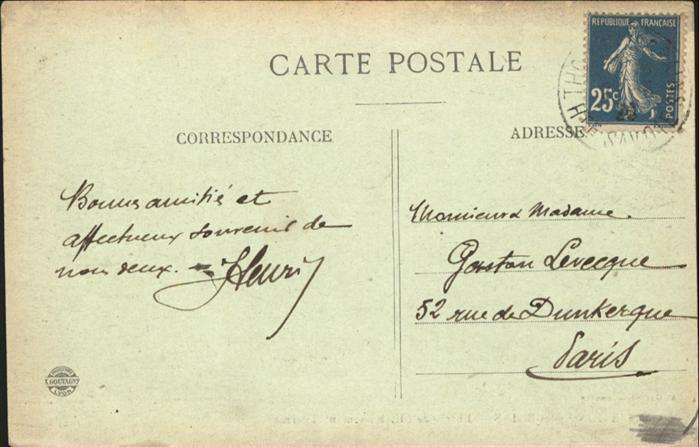 RÉPUBLIQUE FRANÇAISE
25c
POSTES
CARTE POSTALE
CORRESPONDANCE
ADRESSE
Bonnes amitiés et
affectueux souvenir de
nous deux. - Henri
Monsieur & Madame.
Gaston Levecque
52 rue de Dunkerque
Paris
X. GOUTAGNY
LYON